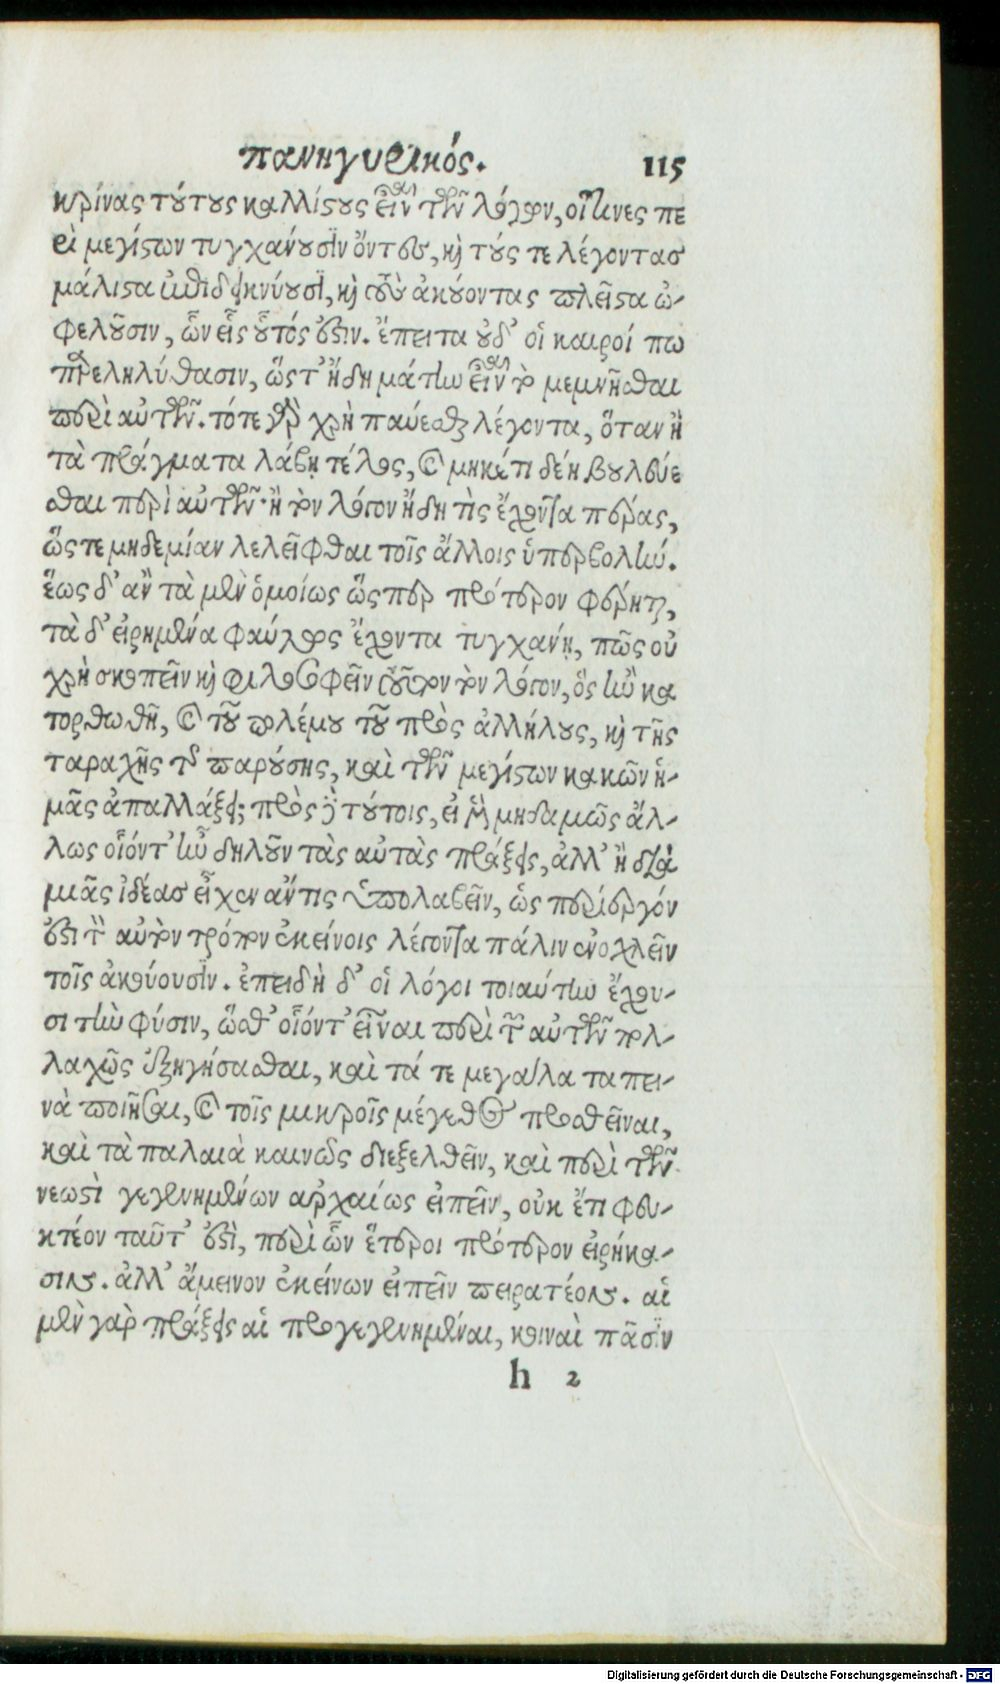 πανηγυρικός. 115
κρίνας τούτους καλλίστους εἶναι τῶν λόγων, οἵτινες πε
ρὶ μεγίστων τυγχάνουσιν ὄντες, καὶ τούς τε λέγοντας
μάλιστα ἐπιδεικνύουσι, καὶ τοὺς ἀκούοντας πλεῖστα ὠ-
φελοῦσιν, ὧν εἷς οὗτός ἐστιν. ἔπειτα οὐδ' οἱ καιροί πω
παρεληλύθασιν, ὥστ' ἤδη μάτην εἶναι τὸ μεμνῆσθαι
περὶ αὐτῶν. τότε γὰρ χρὴ παύεσθαι λέγοντα, ὅταν ἢ
τὰ πράγματα λάβῃ τέλος, καὶ μηκέτι δέῃ βουλεύε
σθαι περὶ αὐτῶν· ἢ τὸν λόγον ἤδη τὶς ἔχοντα πέρας,
ὥστε μηδεμίαν λελεῖφθαι τοῖς ἄλλοις ὑπερβολήν.
ἕως δ' ἂν τὰ μὲν ὁμοίως ὥσπερ πρότερον φέρηται,
τὰ δ' εἰρημένα φαύλως ἔχοντα τυγχάνῃ, πῶς οὐ
χρὴ σκοπεῖν καὶ φιλοσοφεῖν τοῦτον τὸν λόγον, ὃς ἢν κα
τορθωθῇ, καὶ τοῦ πολέμου τοῦ πρὸς ἀλλήλους, καὶ τῆς
ταραχῆς τῆς παρούσης, καὶ τῶν μεγίστων κακῶν ἡ-
μᾶς ἀπαλλάξει; πρὸς δὲ τούτοις, εἰ μὲν μηδαμῶς ἄλ-
λως οἷόντ' ἦν δηλοῦν τὰς αὐτὰς πράξεις, ἀλλ' ἢ διὰ
μιᾶς ἰδέας εἶχεν ἄν τις ὑπολαβεῖν, ὡς περίεργόν
ἐστι τὸν αὐτὸν τρόπον ἐκείνοις λέγοντα πάλιν ἐνοχλεῖν
τοῖς ἀκούουσιν. ἐπειδὴ δ' οἱ λόγοι τοιαύτην ἔχου-
σι τὴν φύσιν, ὥσθ' οἷόντ' εἶναι περὶ τῶν αὐτῶν πολ-
λαχῶς ἐξηγήσασθαι, καὶ τά τε μεγάλα ταπει-
νὰ ποιῆσαι, καὶ τοῖς μικροῖς μέγεθος προσθεῖναι,
καὶ τὰ παλαιὰ καινῶς διεξελθεῖν, καὶ περὶ τῶν
νεωστὶ γεγενημένων ἀρχαίως εἰπεῖν, οὐκ ἔτι φευ-
κτέον ταῦτ' ἐστὶ, περὶ ὧν ἕτεροι πρότερον εἰρήκα-
σιν. ἀλλ' ἄμεινον ἐκείνων εἰπεῖν πειρατέον. αἱ
μὲν γὰρ πράξεις αἱ προγεγενημέναι, κοιναὶ πᾶσιν
h 2
Digitalisierung gefördert durch die Deutsche Forschungsgemeinschaft - DFG